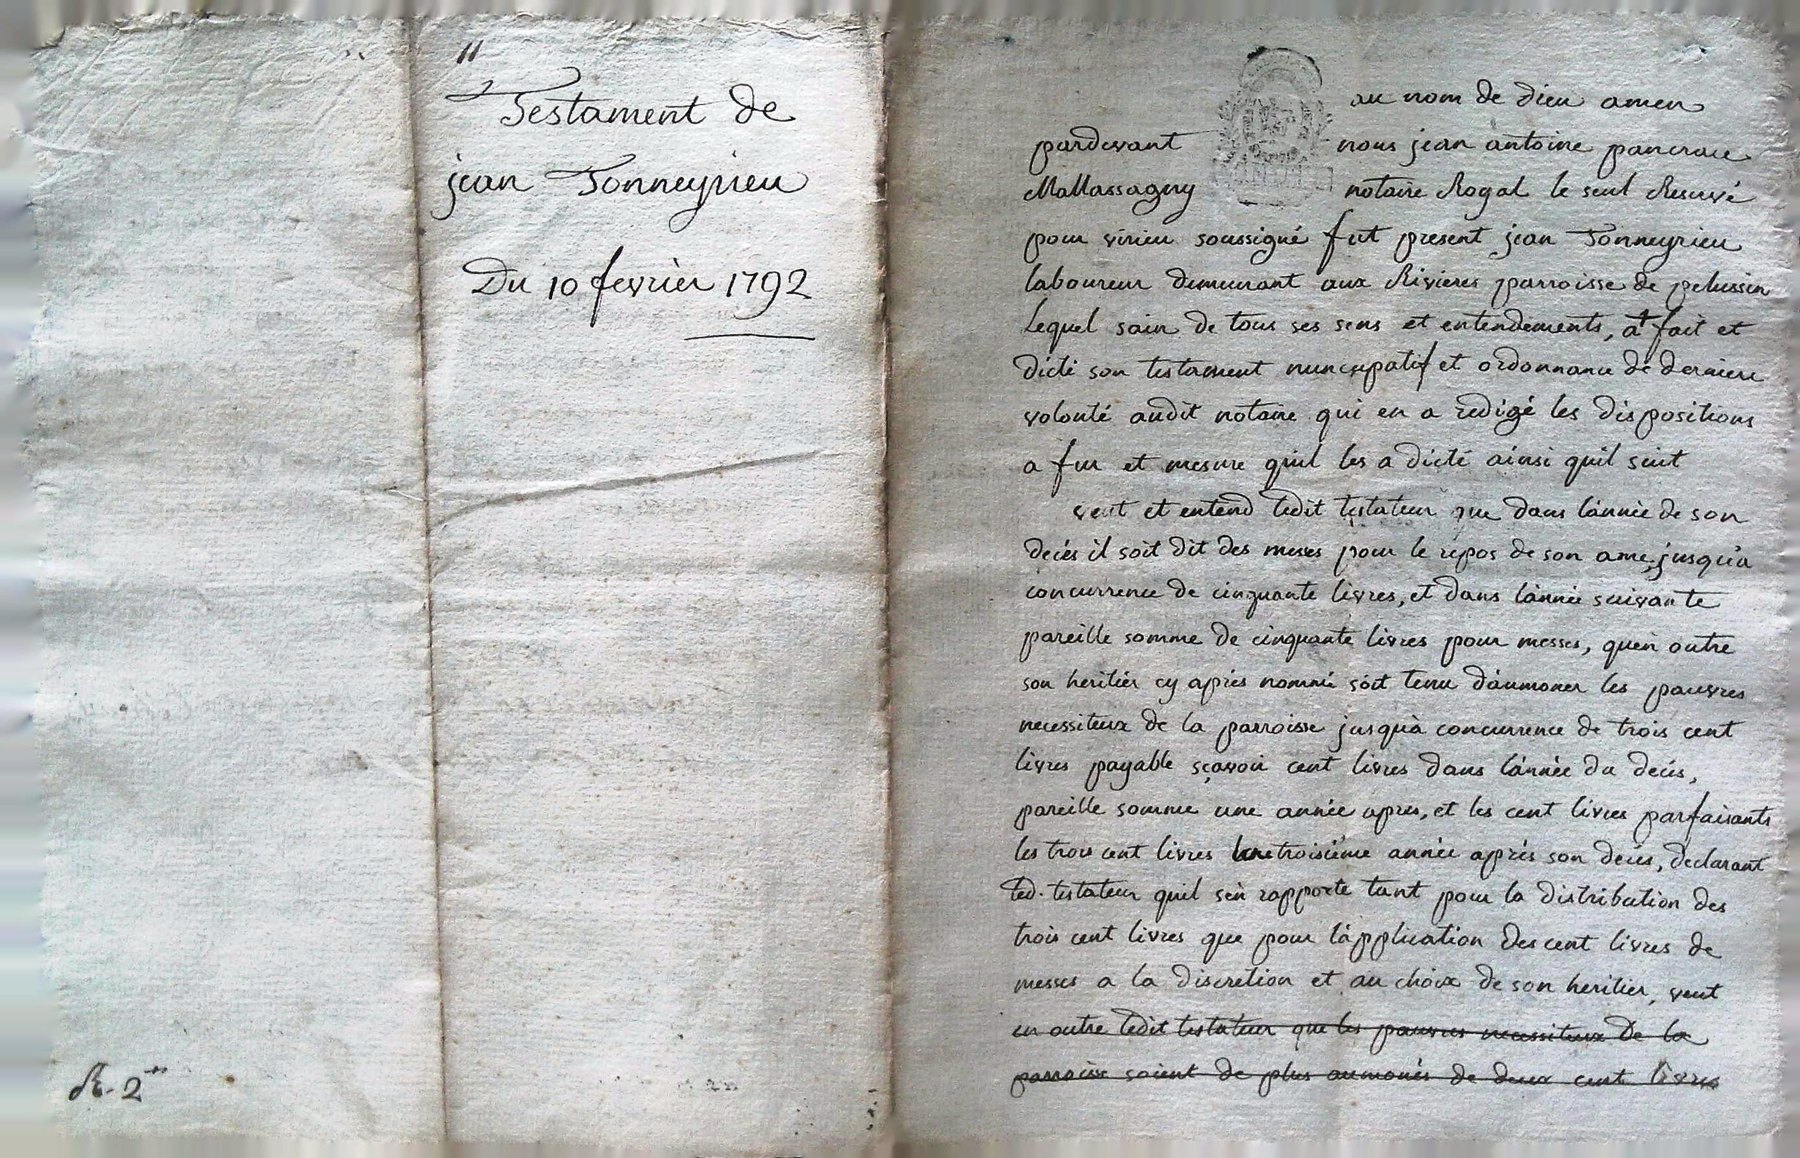 Testament de
jean Tonneyrieu
Du 10 fevrièr 1792
R. 2
au nom de Dieu amen
pardevant nous jean antoine pancrace
Mallassagny notaire Royal le seul Reservé
pour virieu soussigné fut present jean Tonneyrieu
laboureur demeurant aux Rivieres parroisse de pelussin
Lequel sain de tous ses sens et entendements, at fait et
dicté son testament nuncupatif et ordonnance de derniere
volonté audit notaire qui en a redigé les dispositions
a fur et mesure quil les a dicté ainsi quil suit
veut et entend ledit testateur que dans lánnée de son
decés il soit dit des messes pour le repos de son ame, jusqu'a
concurrence de cinquante livres, et dans lánnée suivante
pareille somme de cinquante livres pour messes, quen outre
son heritiér cy aprés nommé soit tenu dáumoner les pauvres
necessiteux de la parroisse jusquà concurrence de trois cent
livres payable sçavoir cent livres dans lánnée du decés,
pareille somme une année apres, et les cent livres parfaisants
les trois cent livres troisiéme année aprés son decés, declarant
led. testateur quil sén rapporte tant pour la distribution des
trois cent livres que pour lápplication des cent livres de
messes a la discretion et au choix de son heritier, veut
en outre ledit testateur que les pauvres necessiteux de la
parroisse soient de plus aumonés de deux cent livres